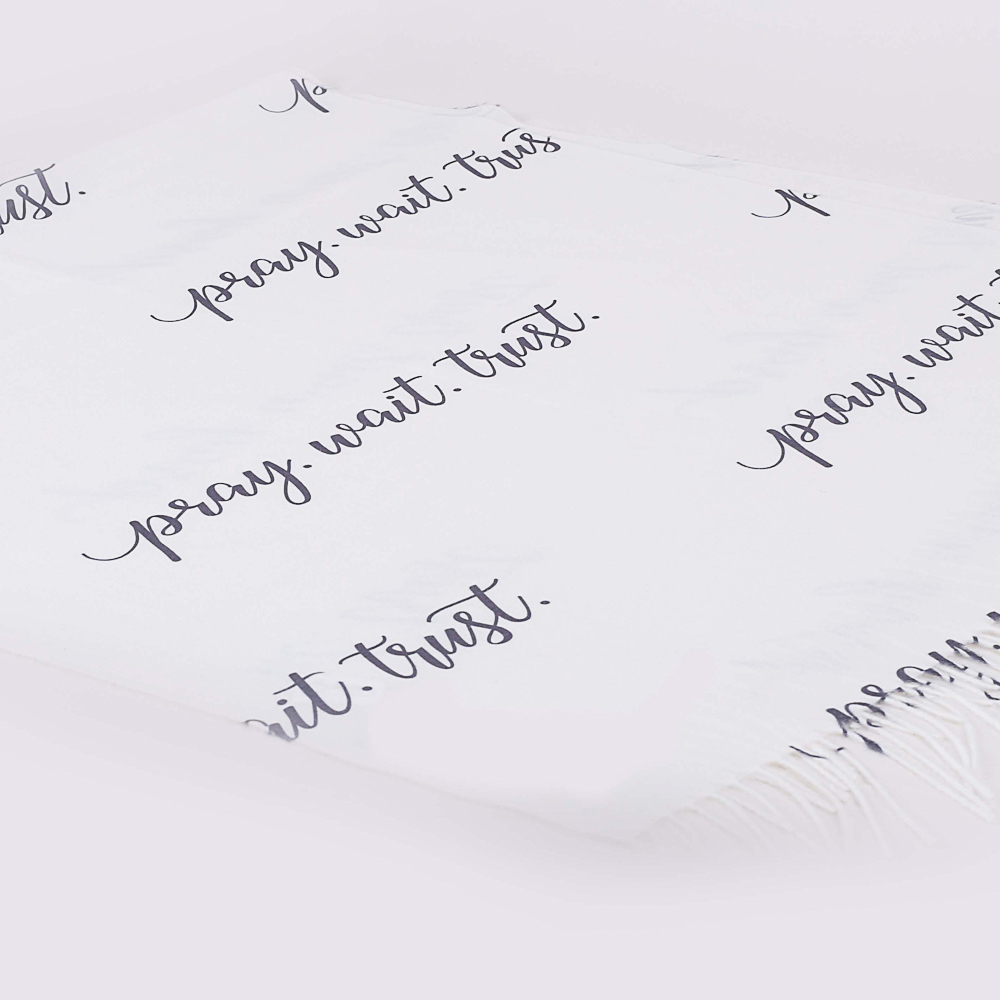 pray. wait. trus
ust.
pray. wait. trust.
pray. wait.
ait. trust.
pray.